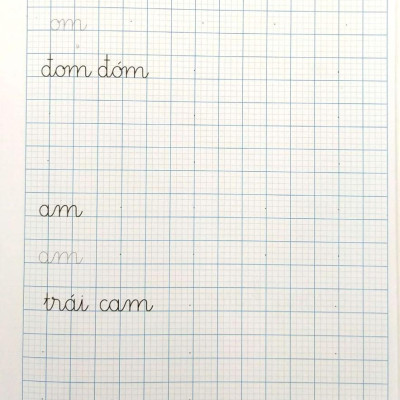 om
đom đóm
am
am
trái cam